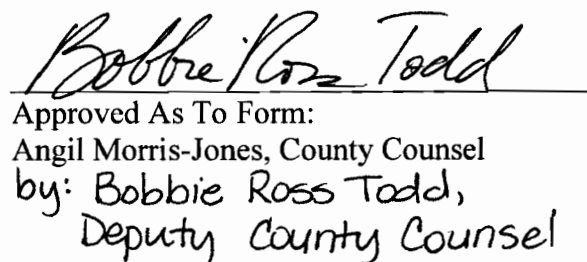 Bobbie Ross Todd
Approved As To Form:
Angil Morris-Jones, County Counsel
by: Bobbie Ross Todd,
Deputy County Counsel